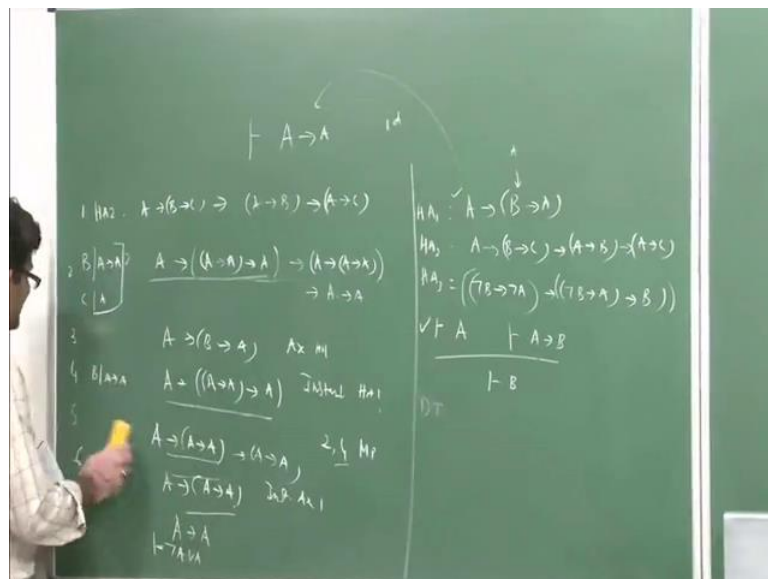 ⊢ A→A
1 HA2. A→(B→C) → (A→B)→(A→C)
2 B|A→A
C|A
A→((A→A)→A) → (A→(A→A))
→ A→A
3 A→(B→A) Ax HA1
4 B|A→A A→((A→A)→A) HA1
5 A→(A→A) →(A→A) 2,4 MP
6 A→(A→A) Ax 1
A→A
⊢¬A∨A
A
↓
HA1: A→(B→A)
HA2. A→(B→C)→(A→B)→(A→C)
HA3 = ((¬B→¬A)→((¬B→A)→B))
✓⊢ A ⊢ A→B
⊢ B
DT